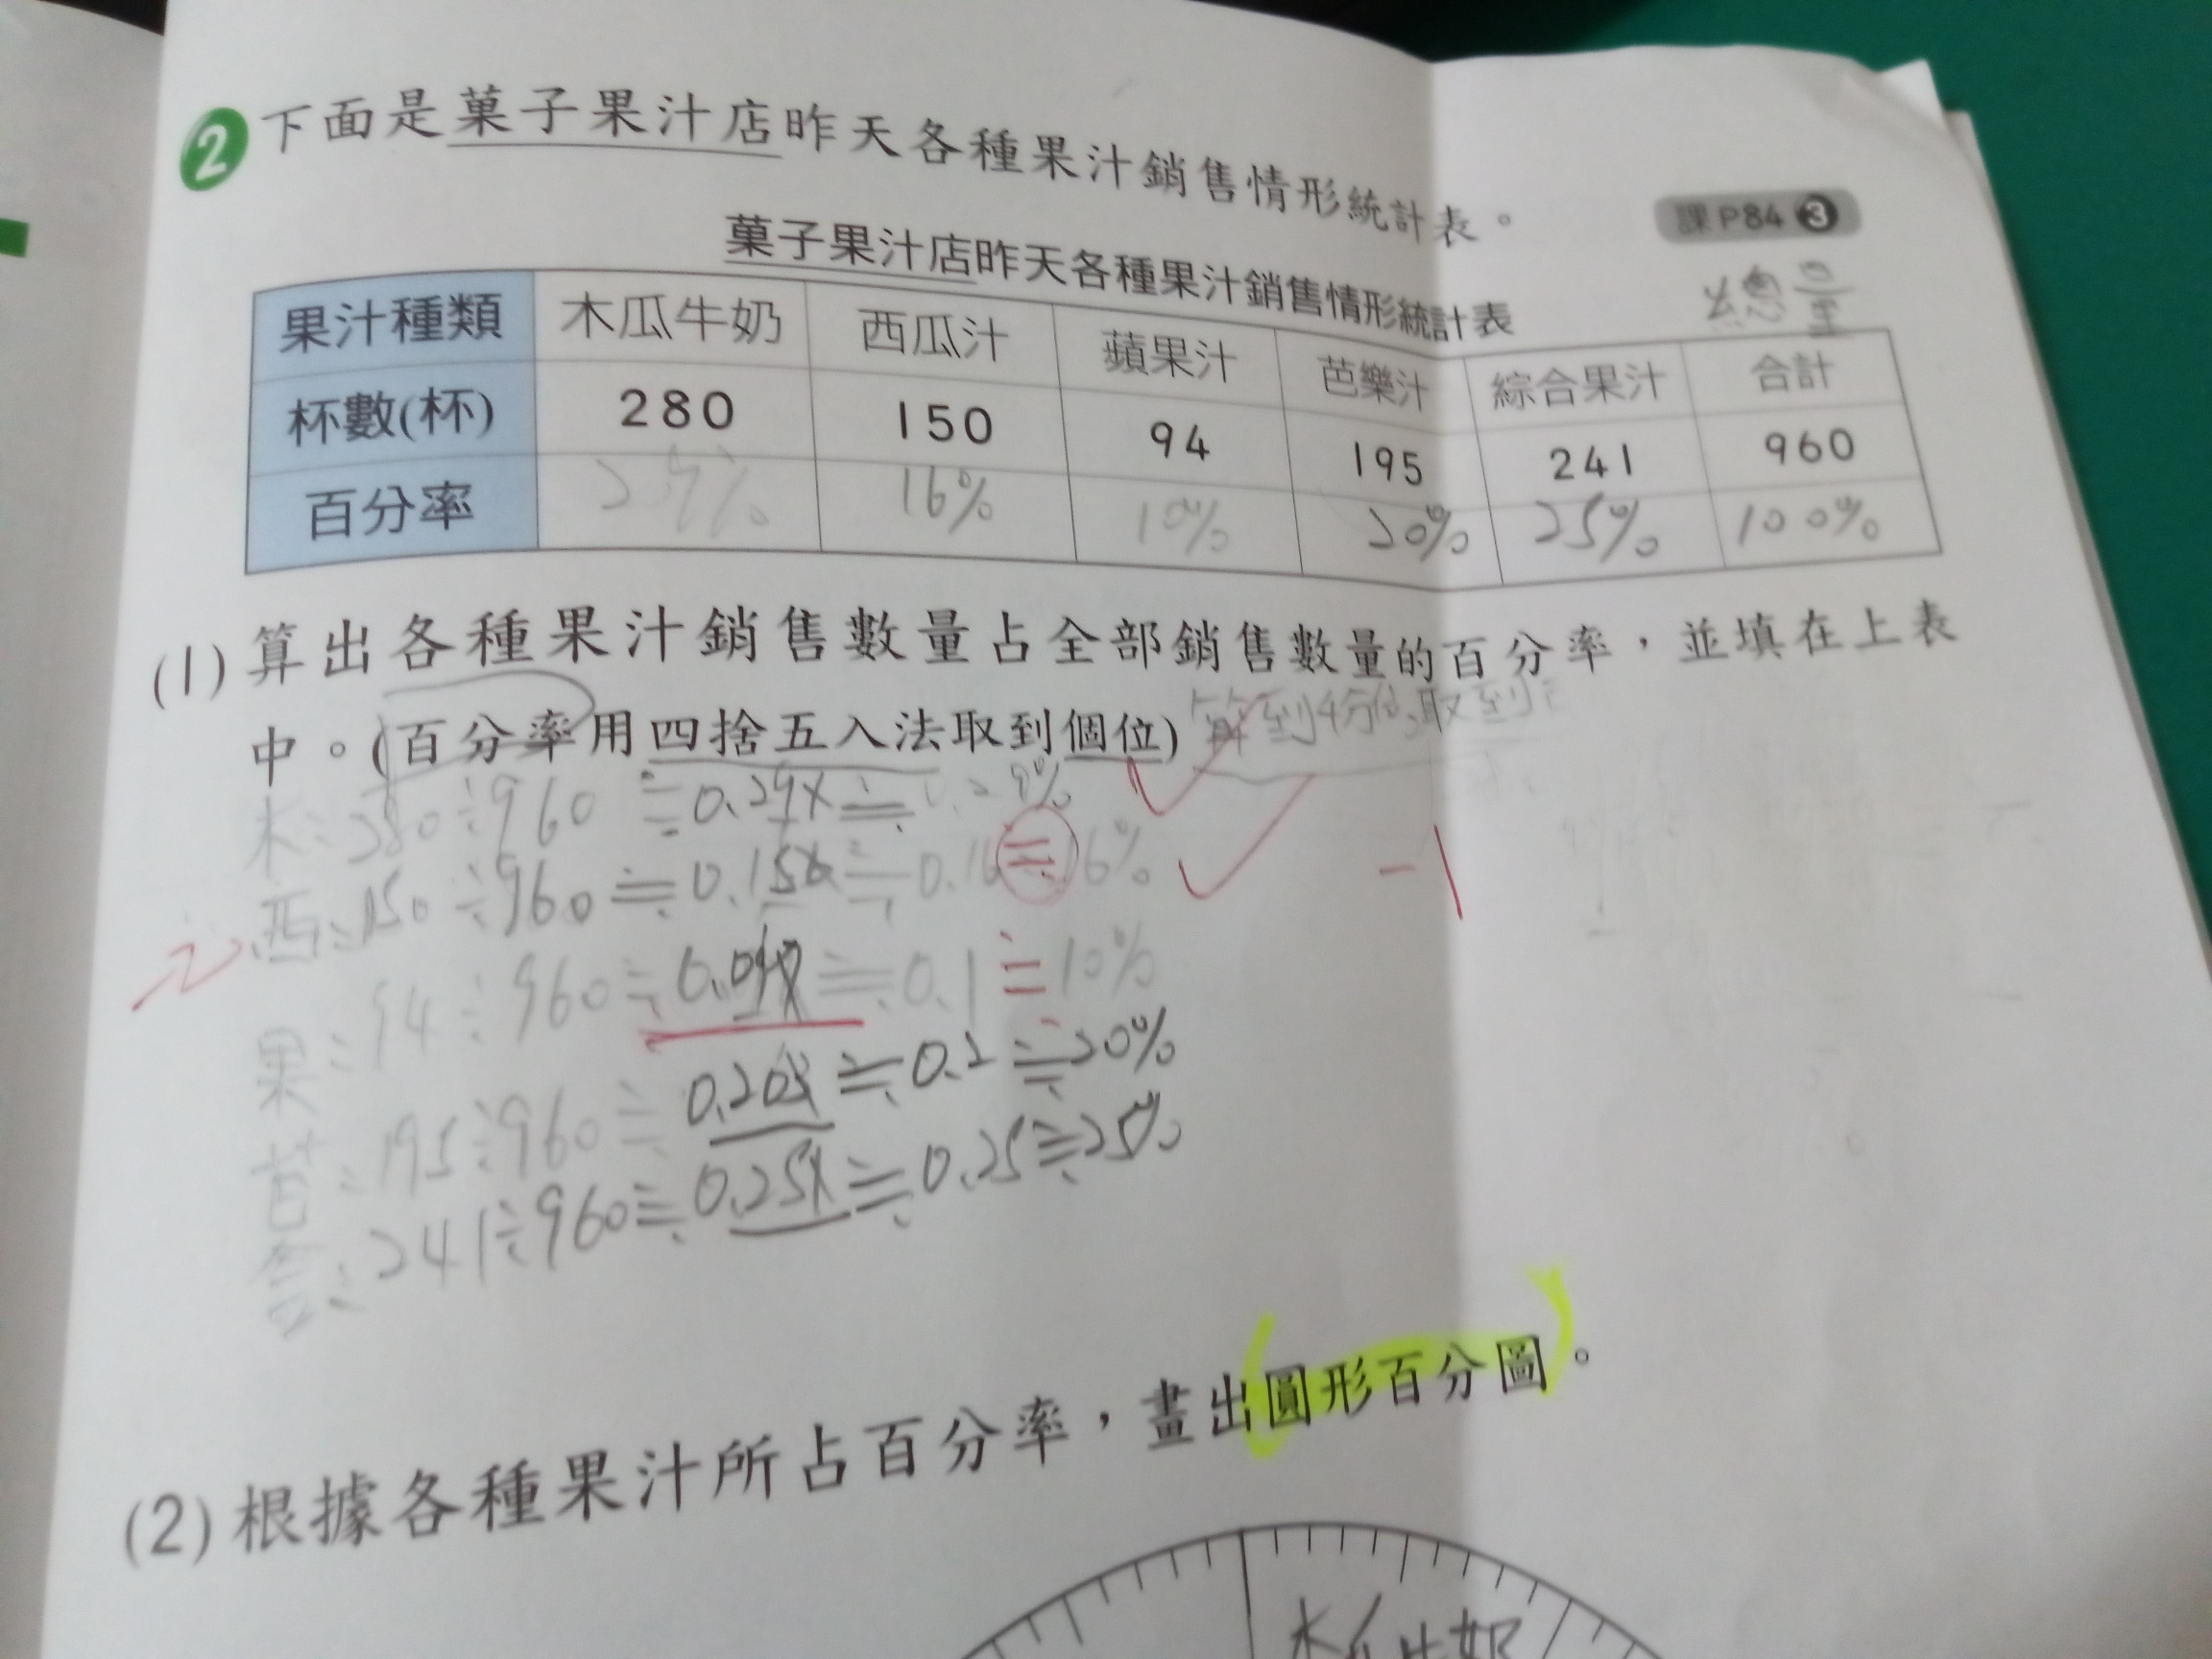 2 下面是菓子果汁店昨天各種果汁銷售情形統計表。
課P84 3
菓子果汁店昨天各種果汁銷售情形統計表
總量
果汁種類 木瓜牛奶 西瓜汁 蘋果汁 芭樂汁 綜合果汁 合計
杯數(杯) 280 150 94 195 241 960
百分率 29% 16% 10% 20% 25% 100%
(1) 算出各種果汁銷售數量占全部銷售數量的百分率,並填在上表
中。(百分率用四捨五入法取到個位) 算到千分位,取到
木:280÷960≒0.29 ≒
西:150÷960≒0.156≒0.16=16%
-1
果:94÷960≒0.097≒0.1=10%
芭:195÷960≒0.203≒0.2≒20%
合:241÷960≒0.251≒0.25≒25%
(2) 根據各種果汁所占百分率,畫出圓形百分圖。
木瓜牛奶